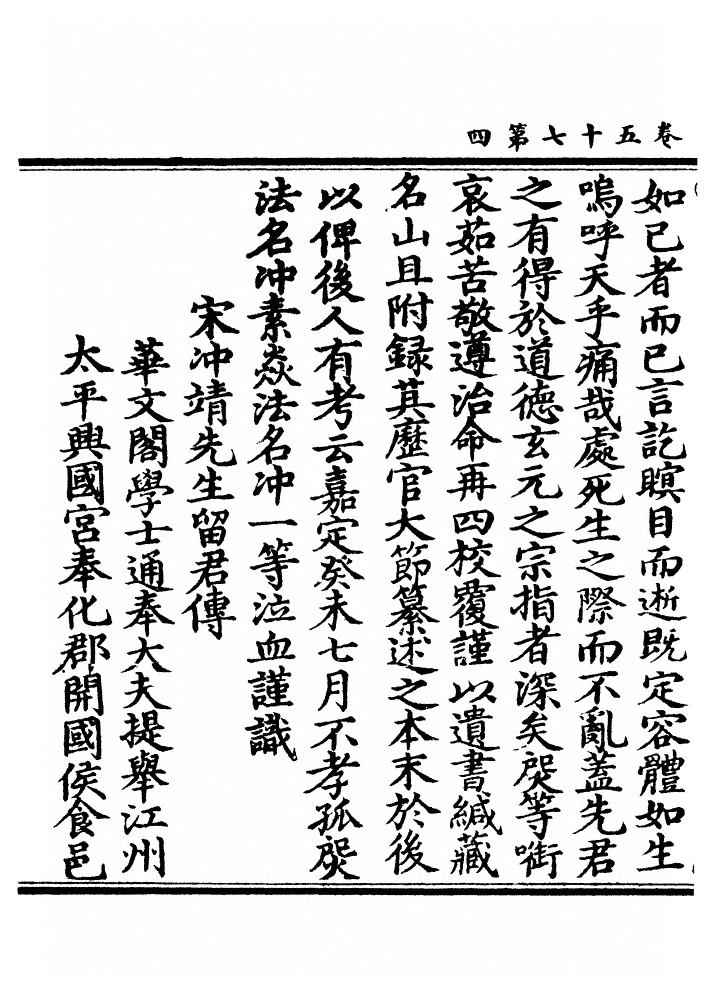 卷五十七第四
如已者而已言訖瞑目而逝既定容體如生
嗚呼天乎痛哉處死生之際而不亂蓋先君
之有得於道德玄元之宗指者深矣 等銜
哀茹苦敬遵治命再四校覆謹以遺書緘藏
名山且附録其歷官大節纂述之本末於後
以俾後人有考云嘉定癸未七月不孝孤
法名冲素焱法名冲一等泣血謹識
宋冲靖先生留君傳
華文閣學士通奉大夫提舉江州
太平興國宮奉化郡開國侯食邑